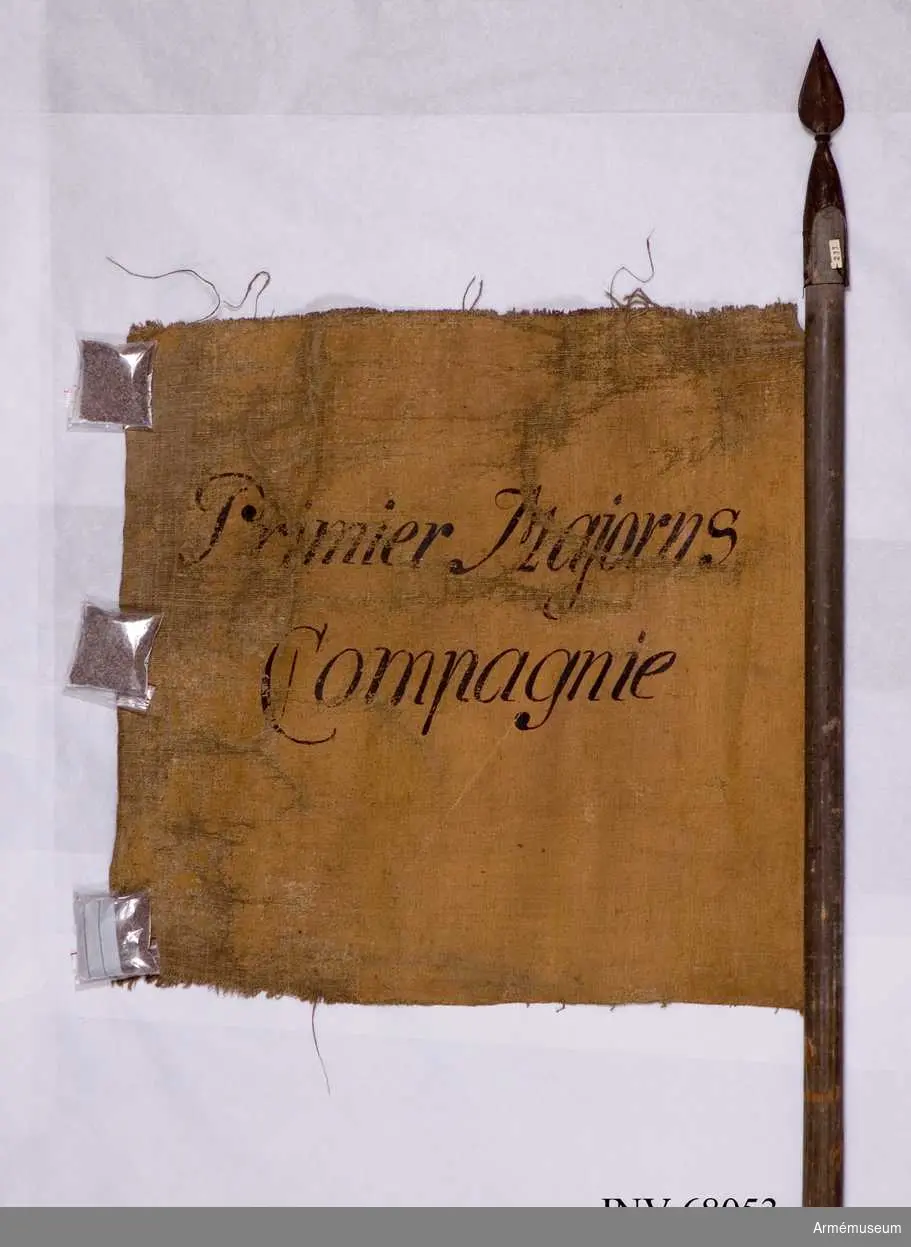 233
Primier Majorns
Compagnie
INV 68053
Armémuseum